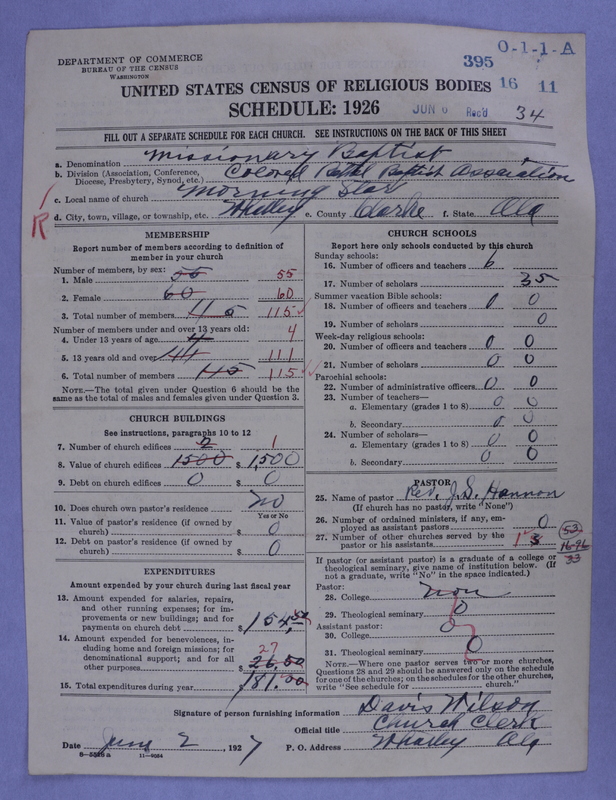 DEPARTMENT OF COMMERCE
BUREAU OF THE CENSUS
WASHINGTON
395
O-1-1-A
16 11
UNITED STATES CENSUS OF RELIGIOUS BODIES
SCHEDULE: 1926
JUN 6 Rec'd
34
FILL OUT A SEPARATE SCHEDULE FOR EACH CHURCH. SEE INSTRUCTIONS ON THE BACK OF THIS SHEET
a. Denomination Missionary Baptist
b. Division (Association, Conference, Diocese, Presbytery, Synod, etc.) Colored Bethel Baptist Association
c. Local name of church Morning Star
R
d. City, town, village, or township, etc. Whatley e. County Clarke f. State Ala
MEMBERSHIP
Report number of members according to definition of member in your church
Number of members, by sex:
1. Male 55 55
2. Female 60 60
3. Total number of members 115 115
Number of members under and over 13 years old:
4. Under 13 years of age 4 4
5. 13 years old and over 111
6. Total number of members 115 115
NOTE.—The total given under Question 6 should be the same as the total of males and females given under Question 3.
CHURCH BUILDINGS
See instructions, paragraphs 10 to 12
7. Number of church edifices 2 1
8. Value of church edifices 1500 $ 1,500
9. Debt on church edifices 0 $ 0
10. Does church own pastor's residence No
Yes or No
11. Value of pastor's residence (if owned by church) $ 0
12. Debt on pastor's residence (if owned by church) $ 0
EXPENDITURES
Amount expended by your church during last fiscal year
13. Amount expended for salaries, repairs, and other running expenses; for improvements or new buildings; and for payments on church debt $ 154.50
14. Amount expended for benevolences, including home and foreign missions; for denominational support; and for all other purposes 27 $ 26.50
15. Total expenditures during year $ 181.00
CHURCH SCHOOLS
Report here only schools conducted by this church
Sunday schools:
16. Number of officers and teachers 6
17. Number of scholars 35
Summer vacation Bible schools:
18. Number of officers and teachers 0 0
19. Number of scholars 0
Week-day religious schools:
20. Number of officers and teachers 0 0
21. Number of scholars 0 0
Parochial schools:
22. Number of administrative officers 0 0
23. Number of teachers—
a. Elementary (grades 1 to 8) 0 0
b. Secondary 0 0
24. Number of scholars—
a. Elementary (grades 1 to 8) 0 0
b. Secondary 0 0
PASTOR
25. Name of pastor Rev. J. S. Hannon
(If church has no pastor, write "None")
26. Number of ordained ministers, if any, employed as assistant pastors 0
27. Number of other churches served by the pastor or his assistants 1 3
53
16-96
33
If pastor (or assistant pastor) is a graduate of a college or theological seminary, give name of institution below. (If not a graduate, write "No" in the space indicated.)
Pastor:
28. College non
29. Theological seminary 0
Assistant pastor:
30. College 0
31. Theological seminary 0
NOTE.—Where one pastor serves two or more churches, Questions 28 and 29 should be answered only on the schedule for one of the churches; on the schedules for the other churches, write "See schedule for church."
Signature of person furnishing information Davis Wilson
Official title Church Clerk
Date June 2, 1927 P. O. Address Whatley Ala
8-5568 a 11-9054